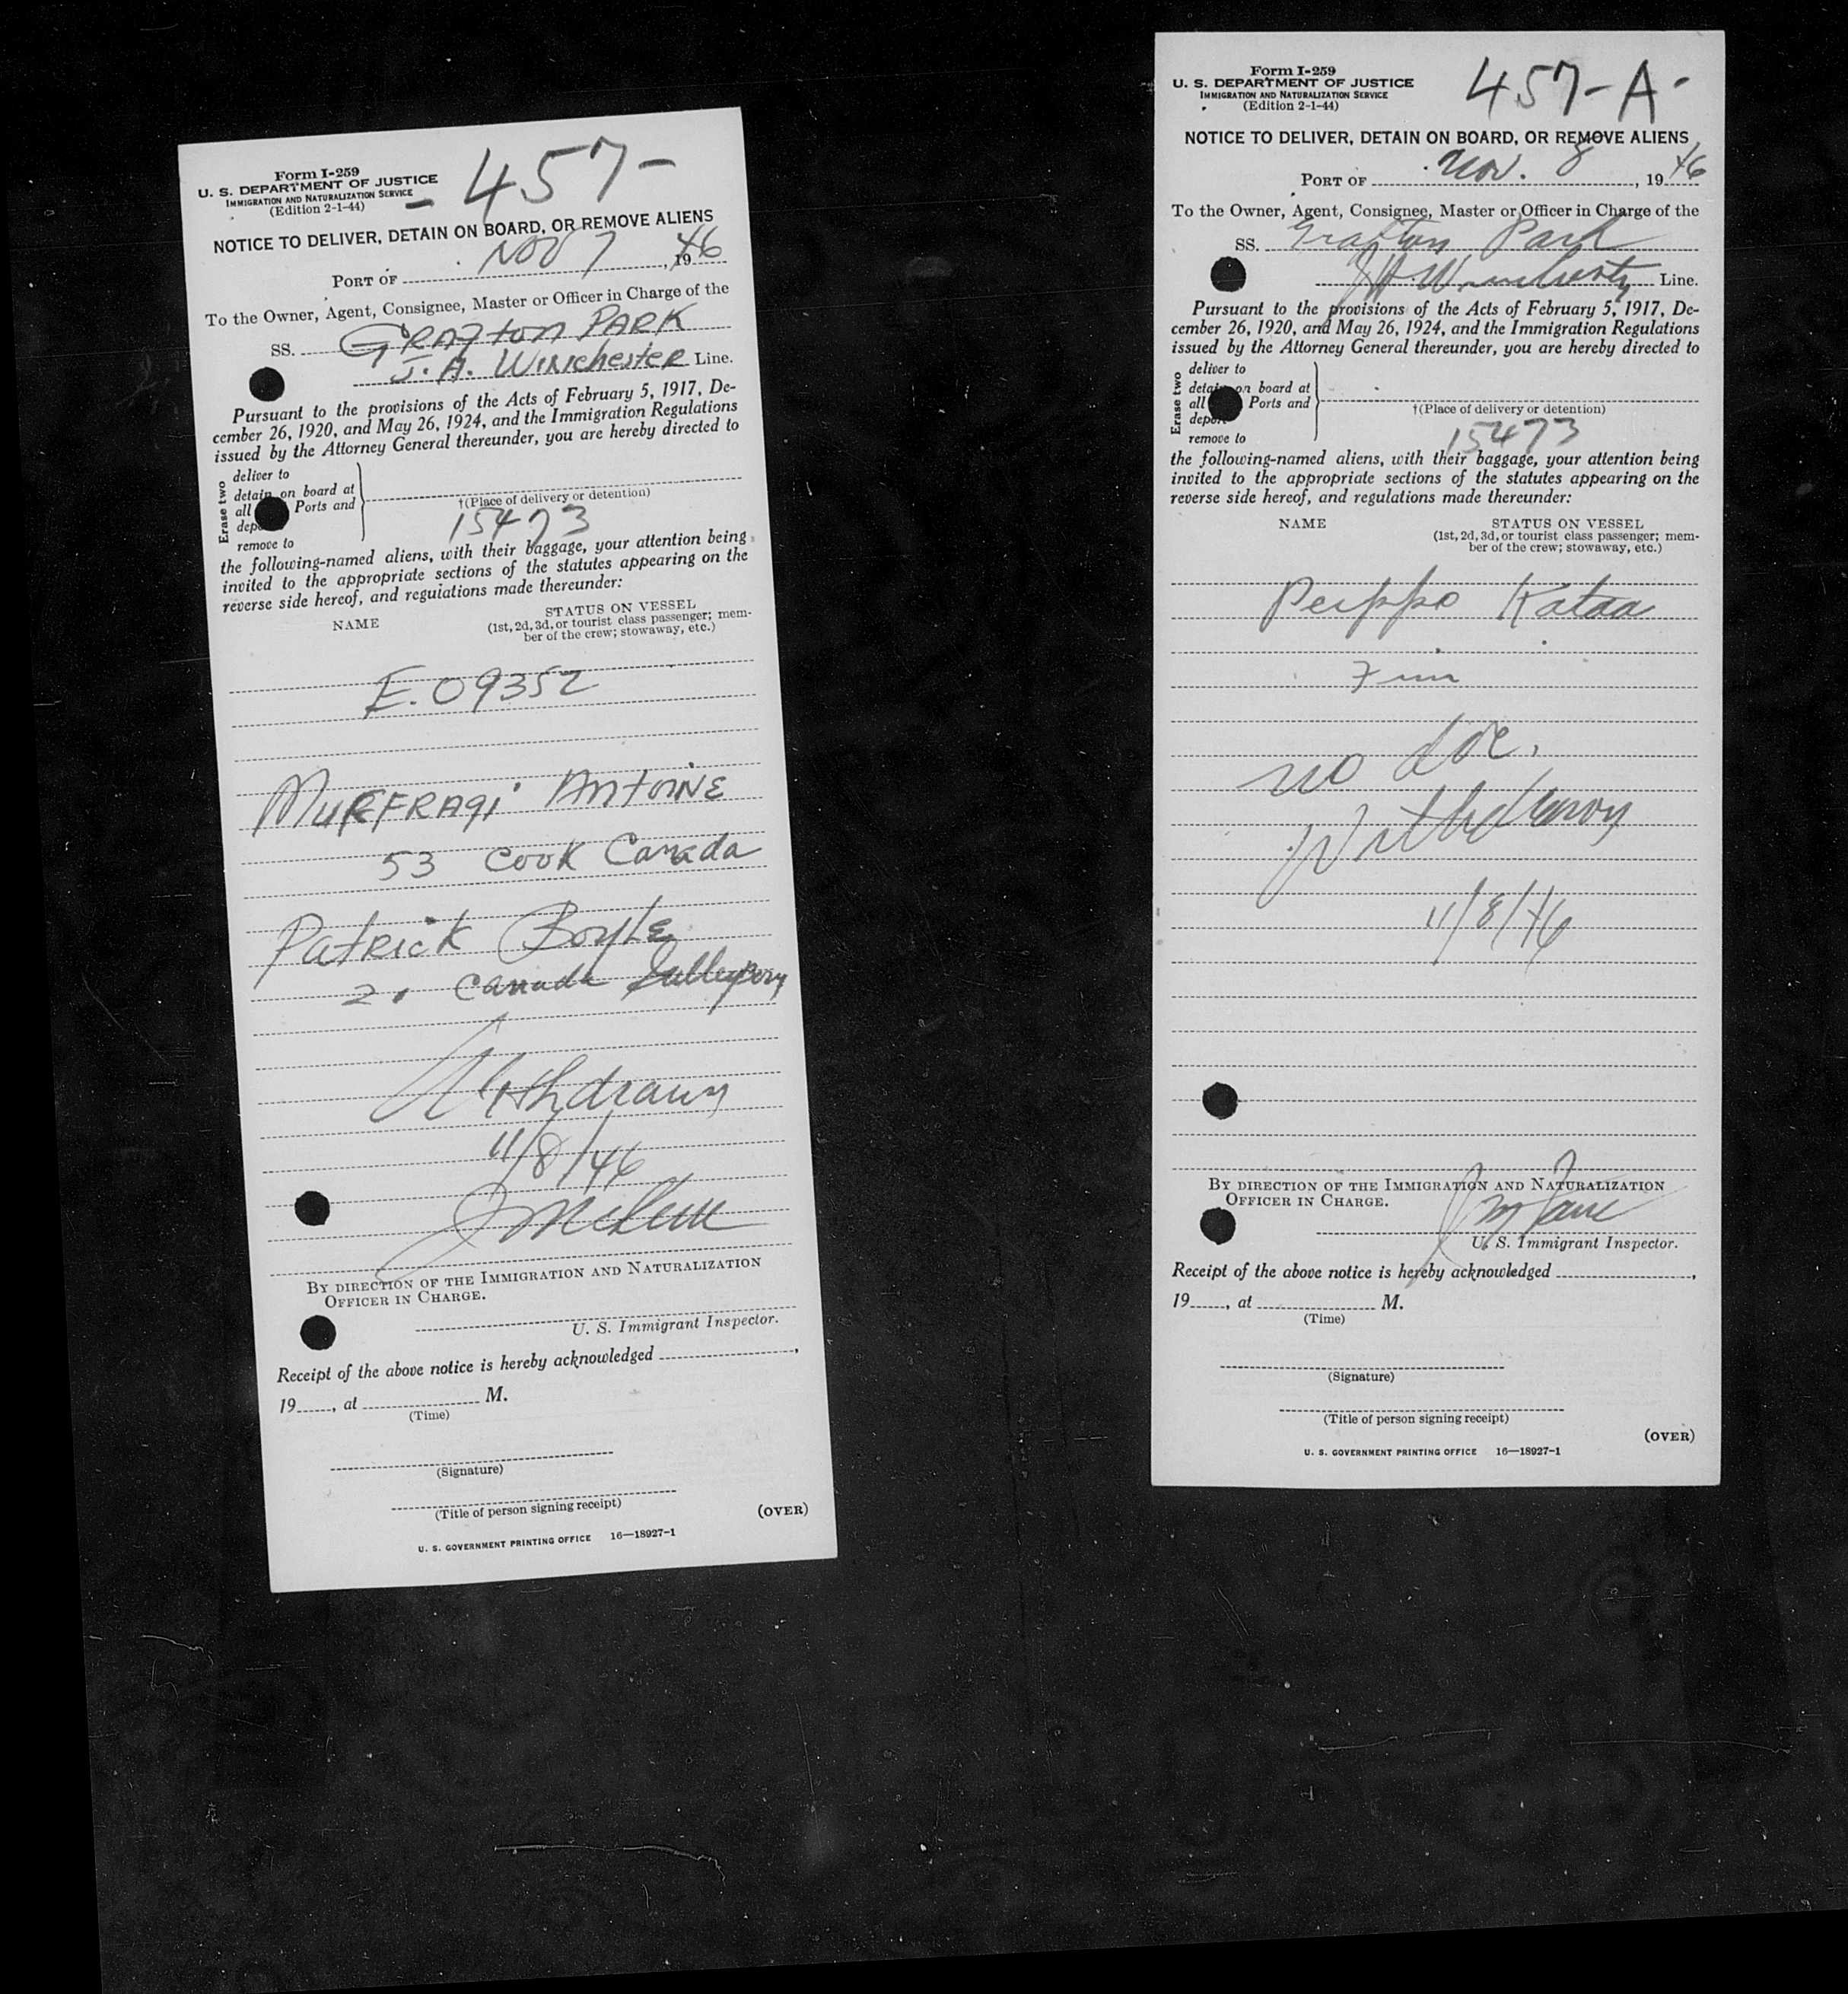 Form I-259
U. S. DEPARTMENT OF JUSTICE
IMMIGRATION AND NATURALIZATION SERVICE
(Edition 2-1-44)
- 457 -
NOTICE TO DELIVER, DETAIN ON BOARD, OR REMOVE ALIENS
PORT OF NOV 7, 1946
To the Owner, Agent, Consignee, Master or Officer in Charge of the
SS. GRAFTON PARK
J. A. WINCHESTER Line.
Pursuant to the provisions of the Acts of February 5, 1917, De-
cember 26, 1920, and May 26, 1924, and the Immigration Regulations
issued by the Attorney General thereunder, you are hereby directed to
Erase two
deliver to
detain on board at
all Ports and
deport
remove to
†(Place of delivery or detention)
15473
the following-named aliens, with their baggage, your attention being
invited to the appropriate sections of the statutes appearing on the
reverse side hereof, and regulations made thereunder:
NAME STATUS ON VESSEL
(1st, 2d, 3d, or tourist class passenger; mem-
ber of the crew; stowaway, etc.)
E. 09352
MUFFRAGI ANTOINE
53 Cook Canada
PATRICK BOYLE
21 Canada Galleyboy
Withdrawn
11/8/46
BY DIRECTION OF THE IMMIGRATION AND NATURALIZATION
OFFICER IN CHARGE.
U. S. Immigrant Inspector.
Receipt of the above notice is hereby acknowledged ,
19 , at M.
(Time)
(Signature)
(Title of person signing receipt)
(OVER)
U. S. GOVERNMENT PRINTING OFFICE 16—18927-1
Form I-259
U. S. DEPARTMENT OF JUSTICE
IMMIGRATION AND NATURALIZATION SERVICE
(Edition 2-1-44)
457-A-
NOTICE TO DELIVER, DETAIN ON BOARD, OR REMOVE ALIENS
PORT OF Nov. 8, 1946
To the Owner, Agent, Consignee, Master or Officer in Charge of the
SS. Grafton Park
JA Winchester Line.
Pursuant to the provisions of the Acts of February 5, 1917, De-
cember 26, 1920, and May 26, 1924, and the Immigration Regulations
issued by the Attorney General thereunder, you are hereby directed to
Erase two
deliver to
detain on board at
all Ports and
deport
remove to
†(Place of delivery or detention)
15473
the following-named aliens, with their baggage, your attention being
invited to the appropriate sections of the statutes appearing on the
reverse side hereof, and regulations made thereunder:
NAME STATUS ON VESSEL
(1st, 2d, 3d, or tourist class passenger; mem-
ber of the crew; stowaway, etc.)
Peippo Kataa
Finn
no doc.
Withdrawn
11/8/46
BY DIRECTION OF THE IMMIGRATION AND NATURALIZATION
OFFICER IN CHARGE.
U. S. Immigrant Inspector.
Receipt of the above notice is hereby acknowledged ,
19 , at M.
(Time)
(Signature)
(Title of person signing receipt)
(OVER)
U. S. GOVERNMENT PRINTING OFFICE 16—18927-1